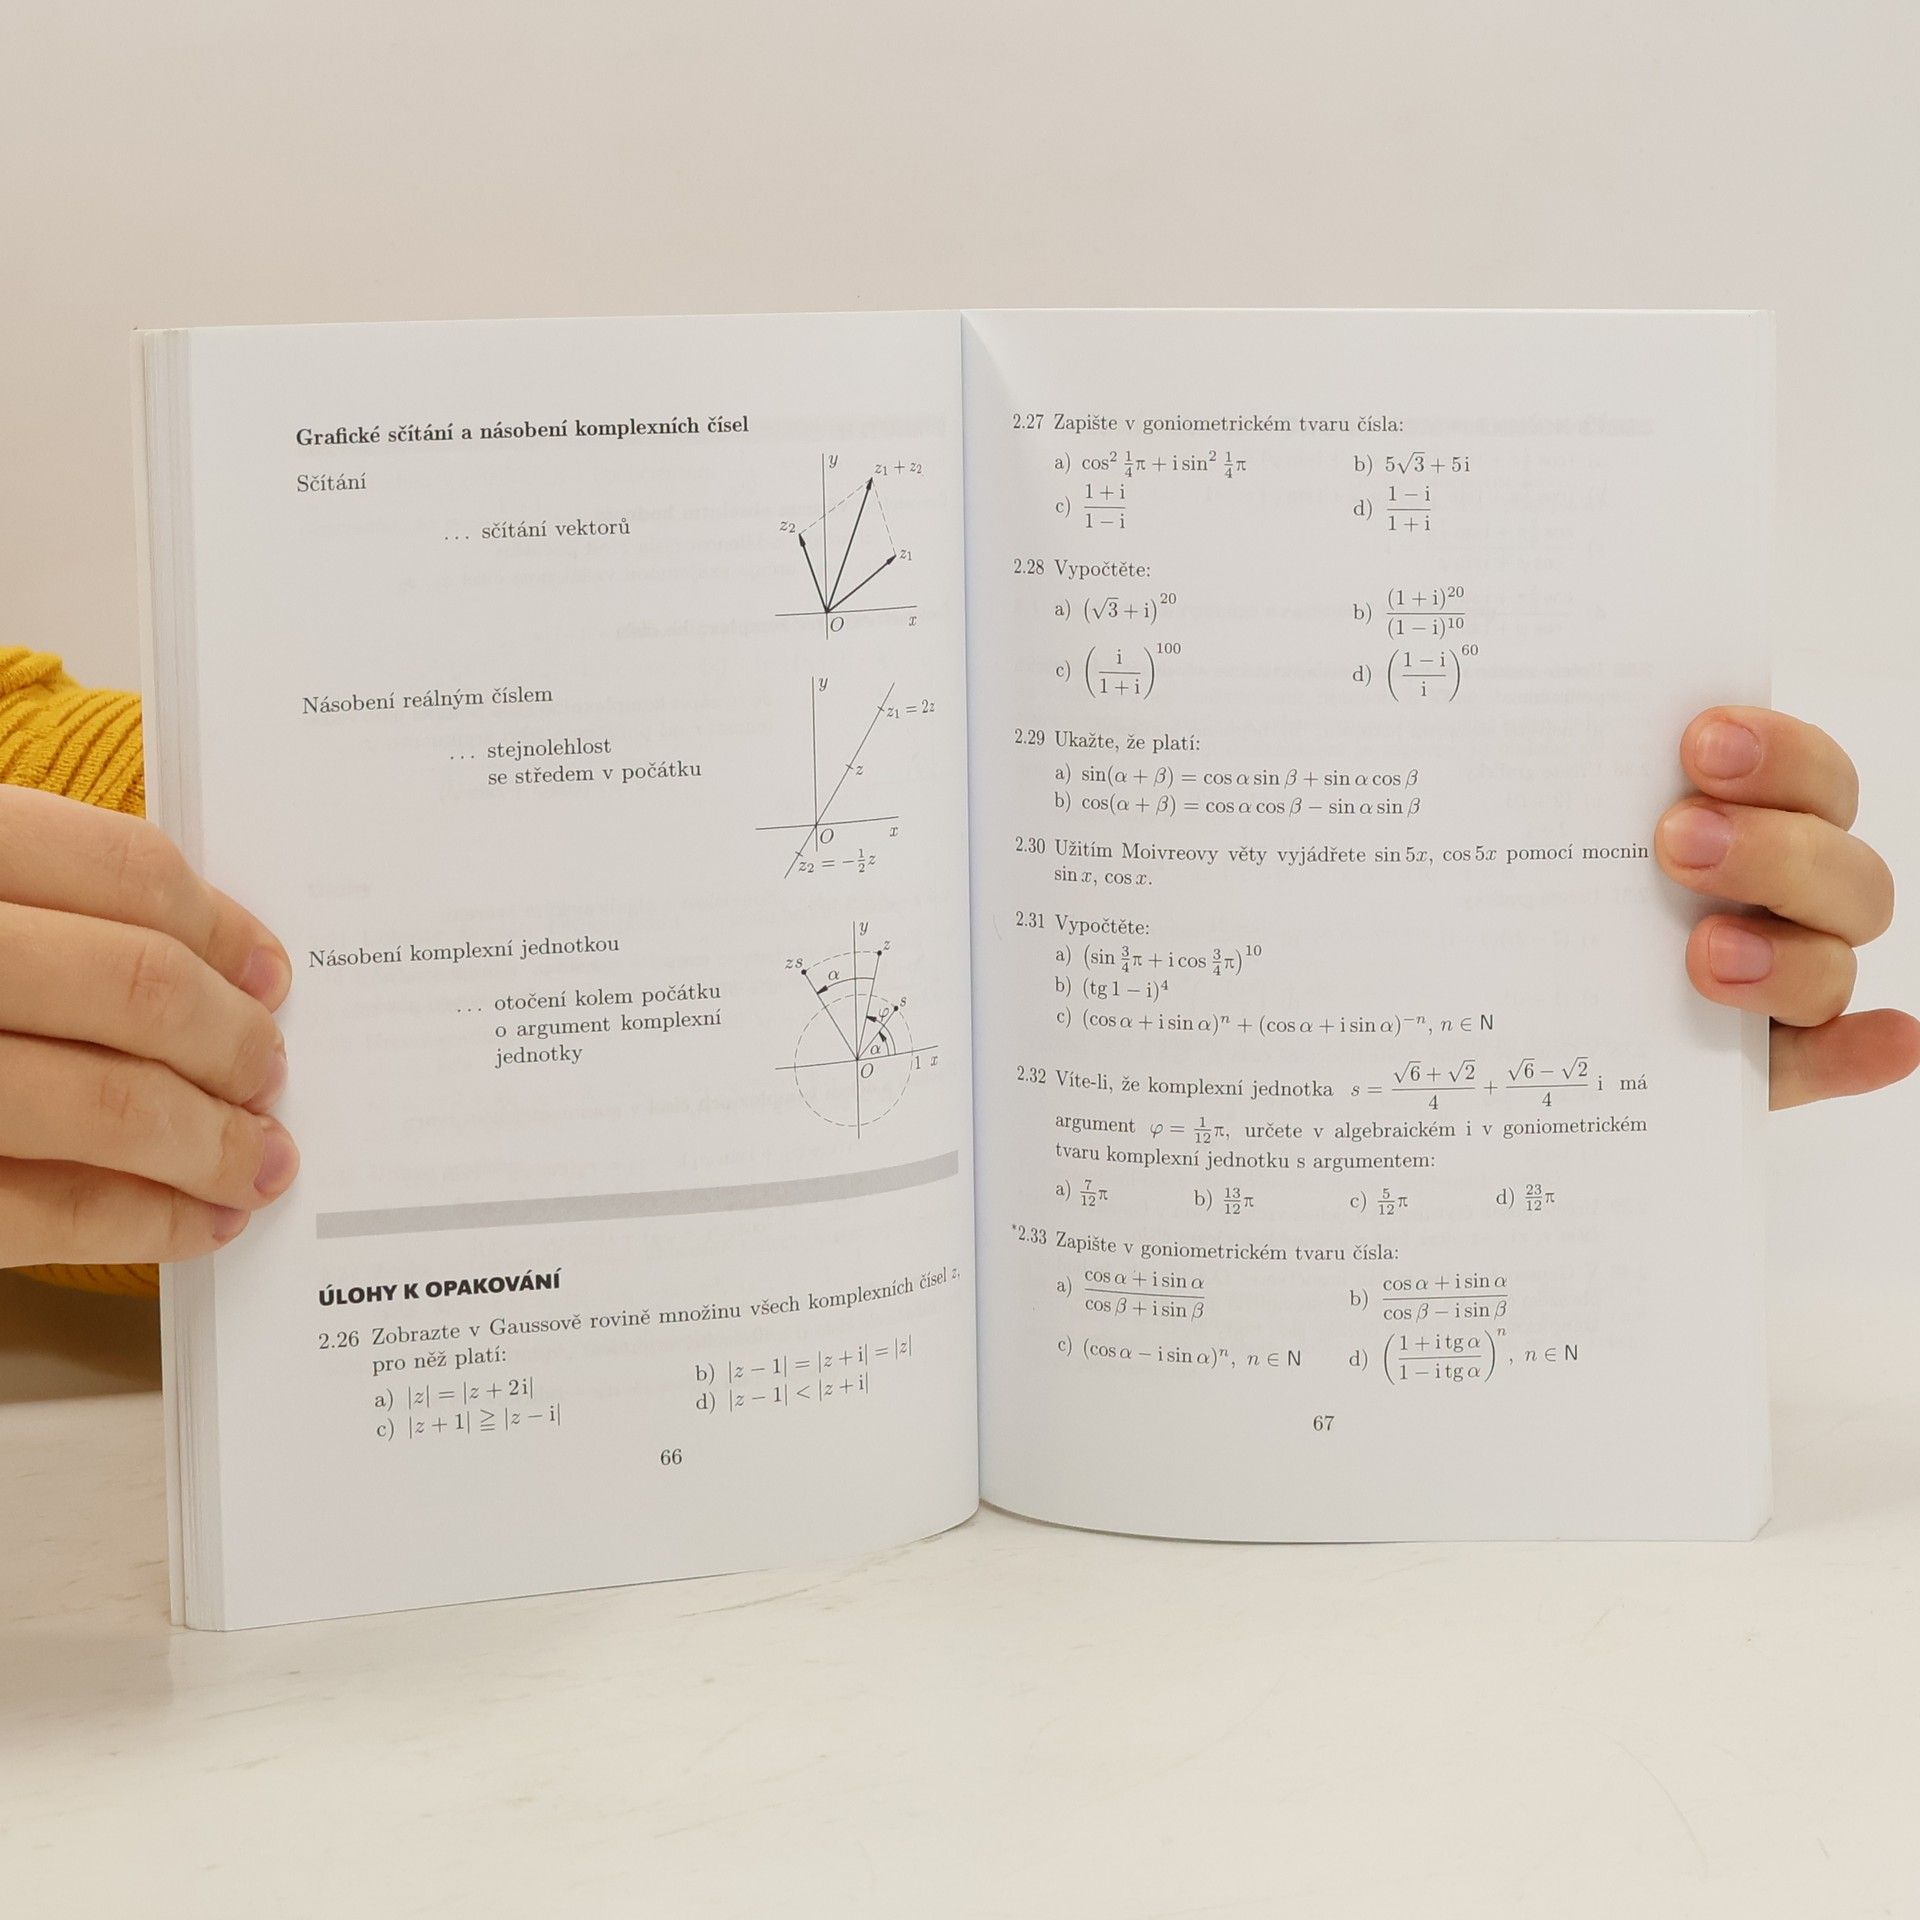 Grafické sčítání a násobení komplexních čísel
Sčítání
... sčítání vektorů
y
z₁ + z₂
z₂
z₁
O
x
Násobení reálným číslem
... stejnolehlost
se středem v počátku
y
z₁ = 2z
z
O
x
z₂ = −½z
Násobení komplexní jednotkou
... otočení kolem počátku
o argument komplexní
jednotky
y
z
zs
α
s
φ
α
O
1 x
ÚLOHY K OPAKOVÁNÍ
2.26 Zobrazte v Gaussově rovině množinu všech komplexních čísel z,
pro něž platí:
a) |z| = |z + 2i|
b) |z − 1| = |z + i| = |z|
c) |z + 1| ≧ |z − i|
d) |z − 1| < |z + i|
66
2.27 Zapište v goniometrickém tvaru čísla:
a) cos² ¼π + i sin² ¼π b) 5√3 + 5i
c) (1 + i)/(1 − i) d) (1 − i)/(1 + i)
2.28 Vypočtěte:
a) (√3 + i)²⁰ b) (1 + i)²⁰/(1 − i)¹⁰
c) (i/(1 + i))¹⁰⁰ d) ((1 − i)/i)⁶⁰
2.29 Ukažte, že platí:
a) sin(α + β) = cos α sin β + sin α cos β
b) cos(α + β) = cos α cos β − sin α sin β
2.30 Užitím Moivreovy věty vyjádřete sin 5x, cos 5x pomocí mocnin
sin x, cos x.
2.31 Vypočtěte:
a) (sin ¾π + i cos ¾π)¹⁰
b) (tg 1 − i)⁴
c) (cos α + i sin α)ⁿ + (cos α + i sin α)⁻ⁿ, n ∈ N
2.32 Víte-li, že komplexní jednotka s = (√6 + √2)/4 + (√6 − √2)/4 i má
argument φ = 1/12 π, určete v algebraickém i v goniometrickém
tvaru komplexní jednotku s argumentem:
a) 7/12 π b) 13/12 π c) 5/12 π d) 23/12 π
*2.33 Zapište v goniometrickém tvaru čísla:
a) (cos α + i sin α)/(cos β + i sin β) b) (cos α + i sin α)/(cos β − i sin β)
c) (cos α − i sin α)ⁿ, n ∈ N d) ((1 + i tg α)/(1 − i tg α))ⁿ, n ∈ N
67